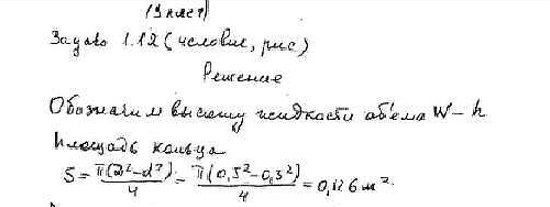 (1 лист)
Задача 1.12 (условие, рис)
Решение
Обозначим высоту жидкости объема W – h
Площадь кольца
S = π(D²-d²)/4 = π(0,5²-0,3²)/4 = 0,126 м².